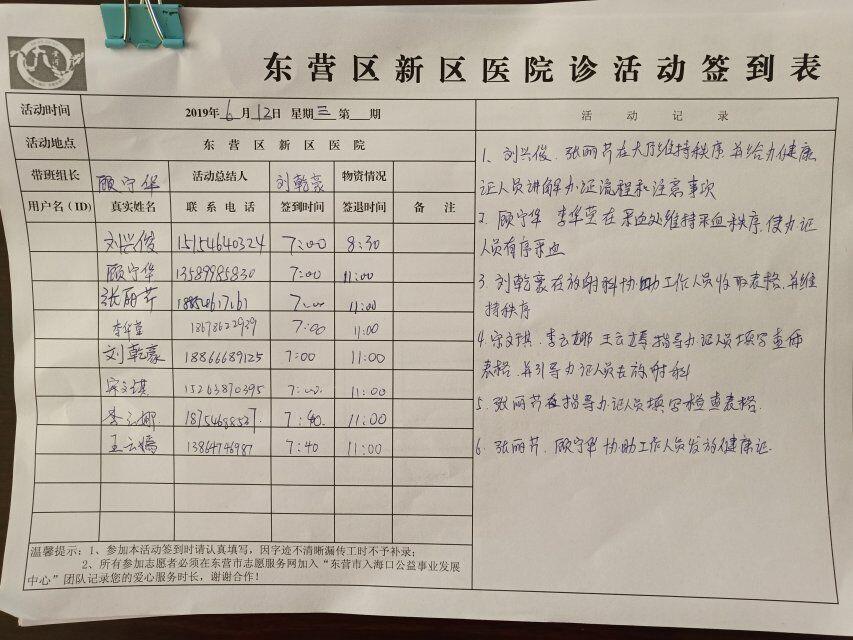 东营区新区医院诊活动签到表
活动时间 2019年6月12日 星期三 第 期 活动记录
活动地点 东营区新区医院
带班组长 顾守华 活动总结人 刘乾豪 物资情况
用户名(ID) 真实姓名 联系电话 签到时间 签退时间 备注
刘兴俊 15154640324 7:00 8:30
顾守华 13589985830 7:00 11:00
张丽芹 7:00 11:00
李华莹 18678622939 7:00 11:00
刘乾豪 18866689125 7:00 11:00
宋文琪 15263870395 7:00 11:00
李云娜 7:40 11:00
王云嫣 13864746987 7:40 11:00
温馨提示:1、参加本活动签到时请认真填写,因字迹不清晰漏传工时不予补录;
2、所有参加志愿者必须在东营市志愿服务网加入“东营市入海口公益事业发展
中心”团队记录您的爱心服务时长,谢谢合作!
1、刘兴俊、张丽芹在大厅维持秩序,并给办健康
证人员讲解办证流程和注意事项
2、顾守华 李华莹在采血处维持采血秩序,使办证
人员有序采血
3、刘乾豪在放射科协助工作人员收取表格,并维
持秩序
4、宋文琪、李云娜 王云嫣指导办证人员填写查体
表格,并引导办证人员去放射科
5、张丽芹在指导办证人员填写检查表格.
6、张丽芹、顾守华协助工作人员发放健康证.